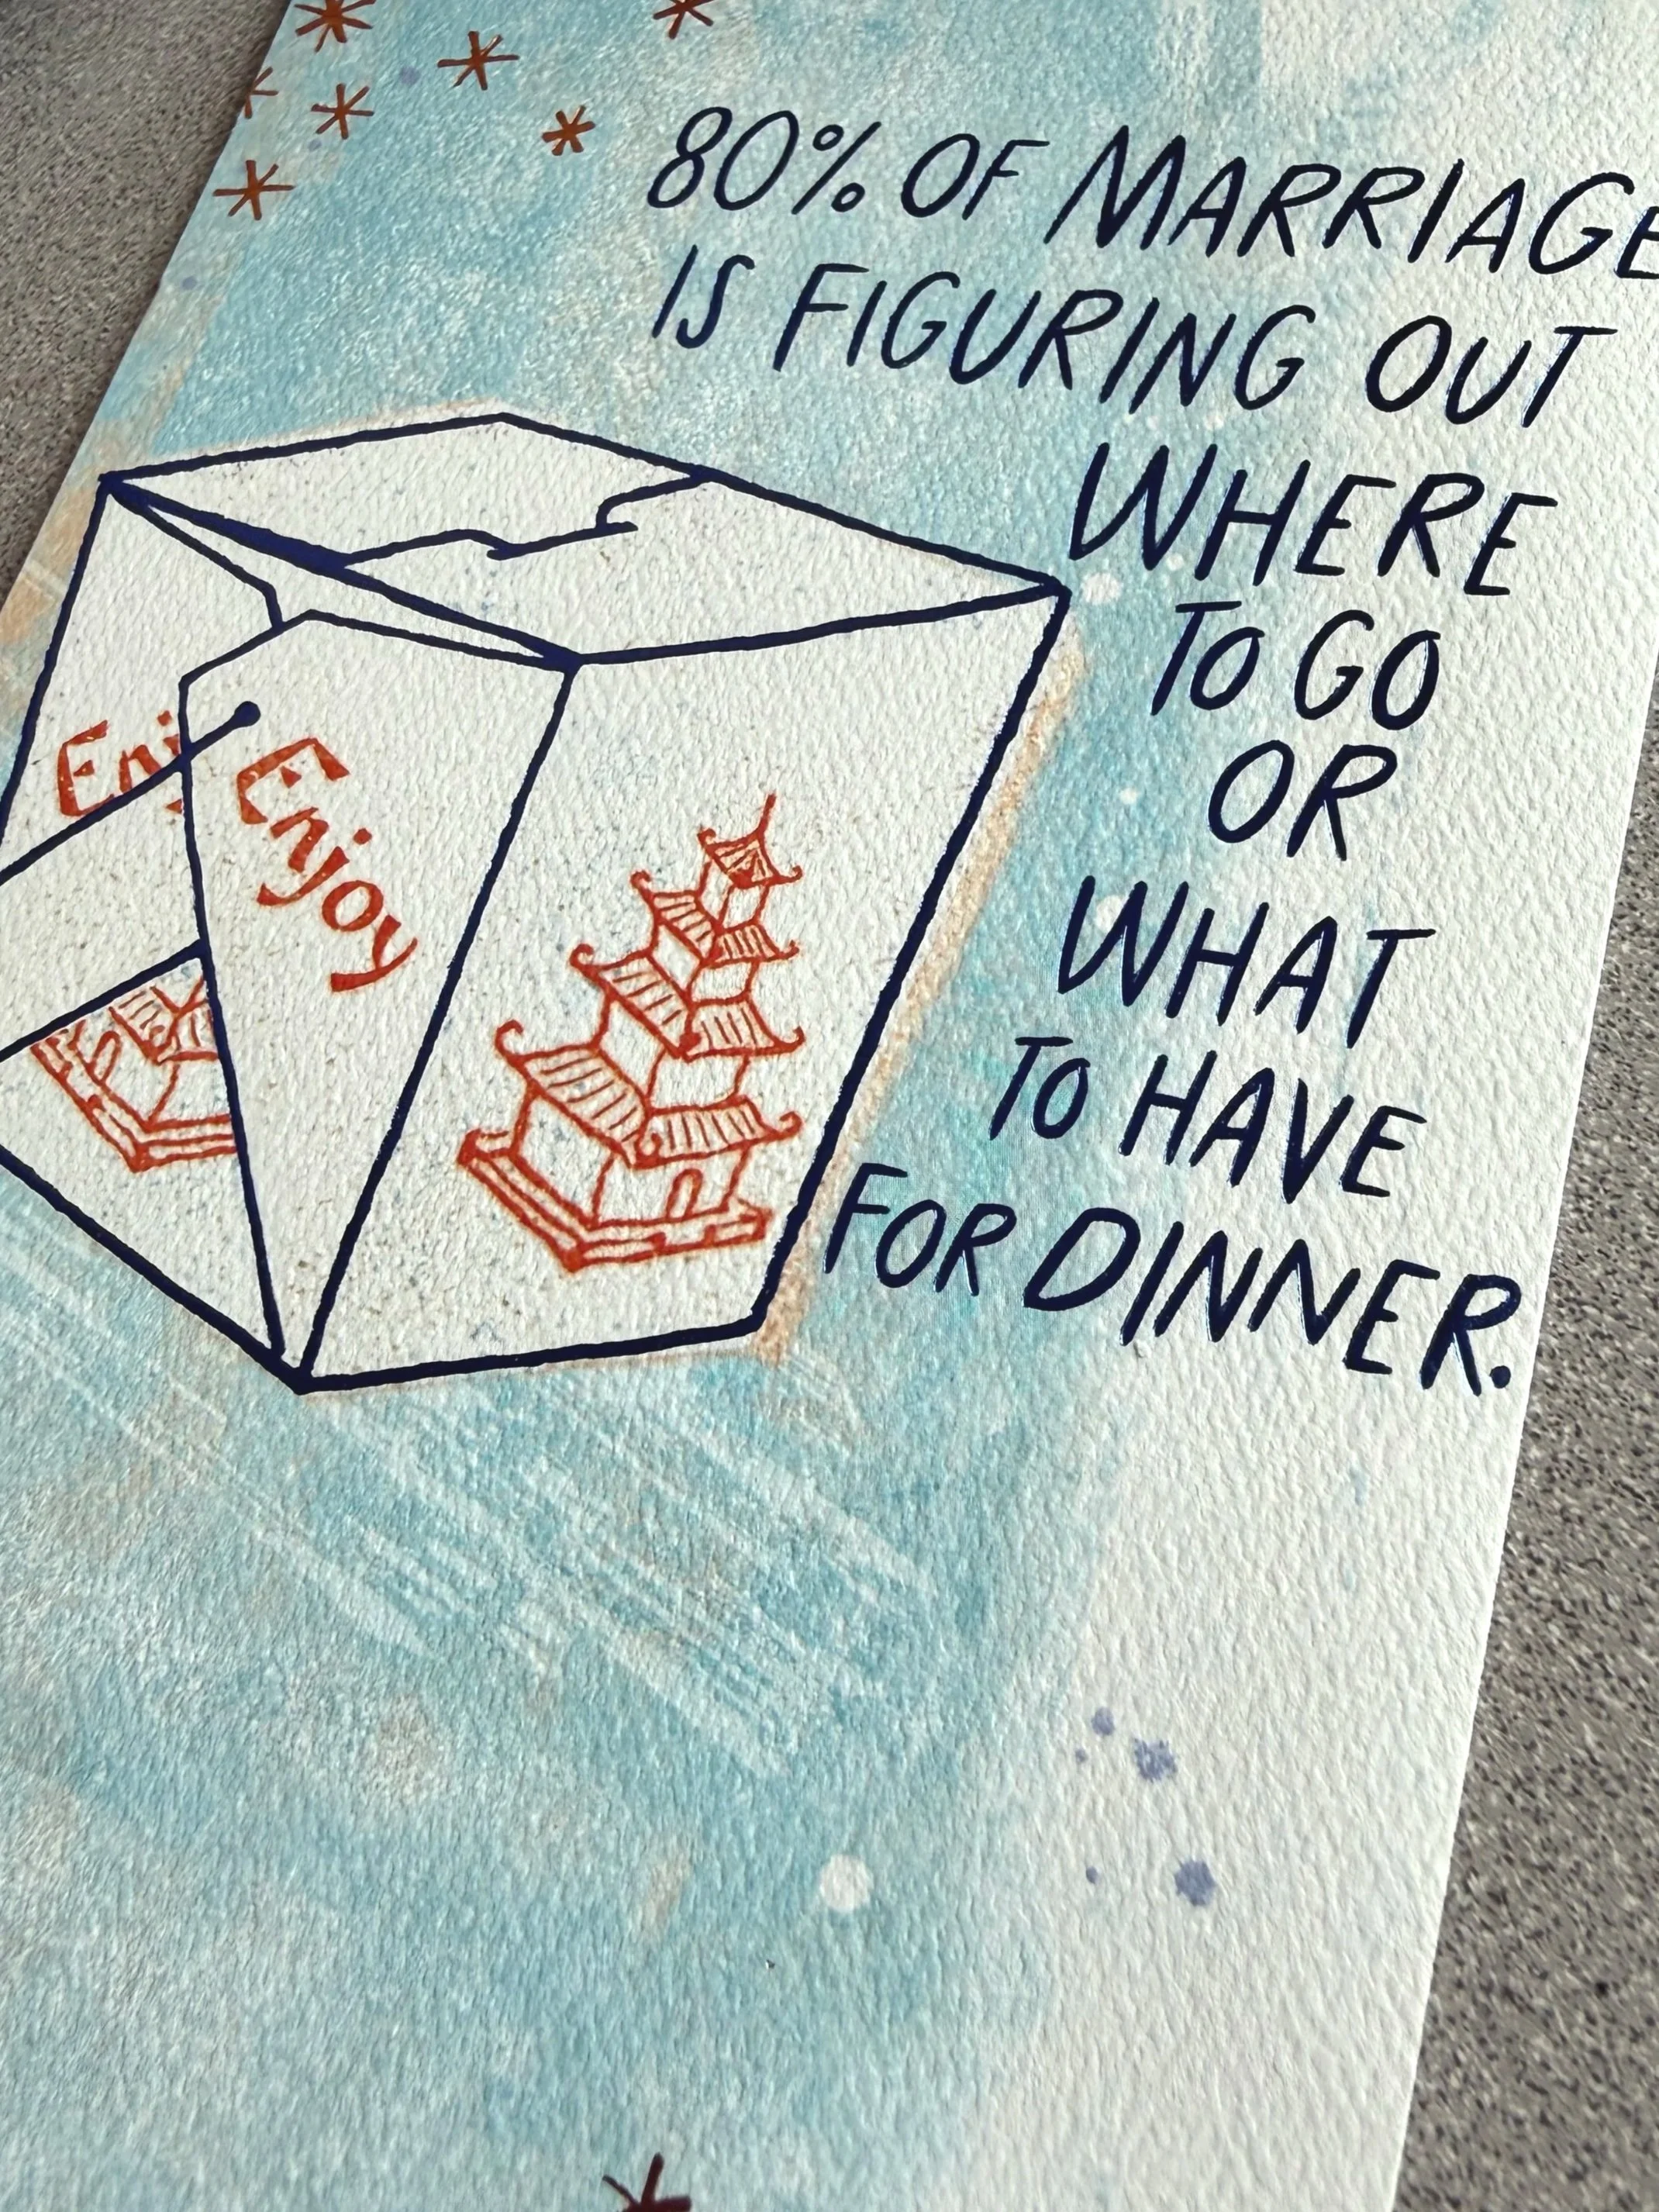 80% OF MARRIAGE
IS FIGURING OUT
WHERE
TO GO
OR
WHAT
TO HAVE
FOR DINNER.
Enj
Enjoy